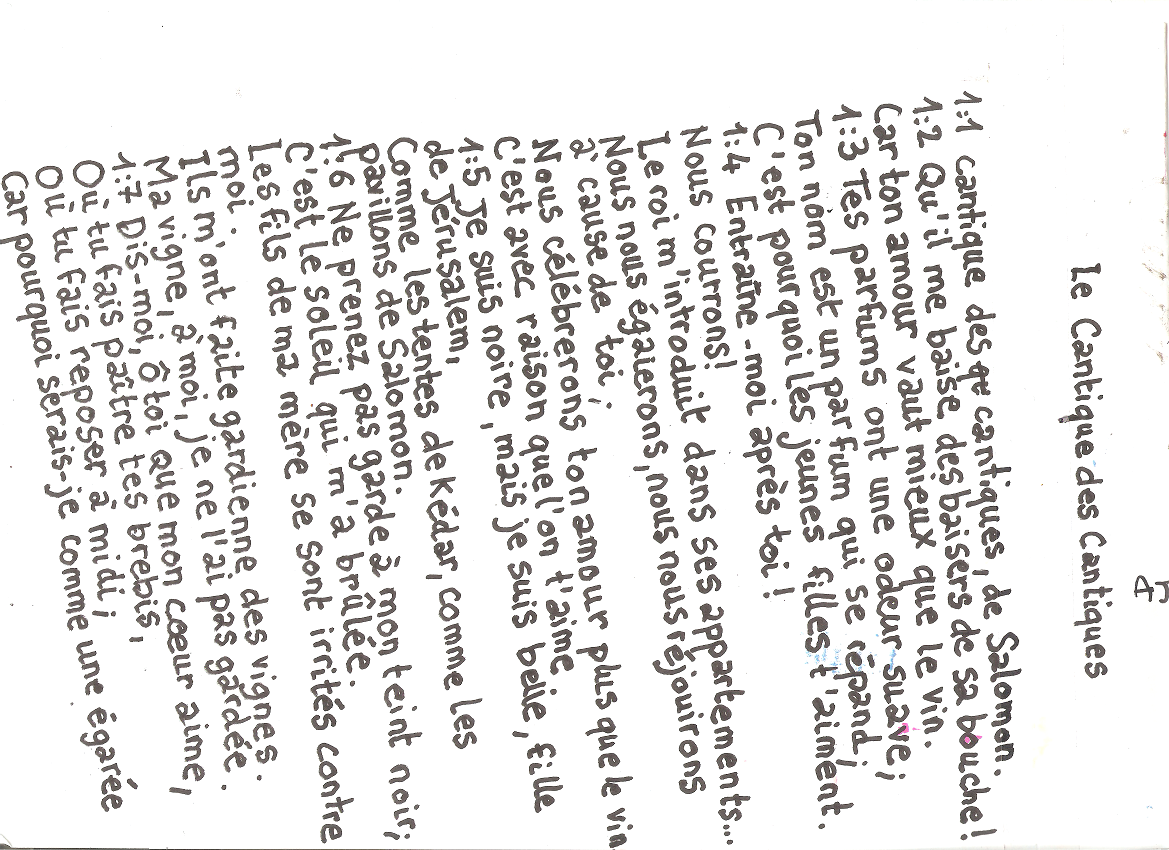 Le Cantique des Cantiques
1:1 Cantique des cantiques, de Salomon.
1:2 Qu'il me baise des baisers de sa bouche!
Car ton amour vaut mieux que le vin.
1:3 Tes parfums ont une odeur suave;
Ton nom est un parfum qui se répand;
C'est pourquoi les jeunes filles t'aiment.
1:4 Entraîne-moi après toi!
Nous courrons!
Le roi m'introduit dans ses appartements...
Nous nous égaierons, nous nous réjouirons
à cause de toi;
Nous célébrerons ton amour plus que le vin
C'est avec raison que l'on t'aime.
1:5 Je suis noire, mais je suis belle, fille
de Jérusalem,
Comme les tentes de Kédar, comme les
pavillons de Salomon.
1:6 Ne prenez pas garde à mon teint noir;
C'est le soleil qui m'a brûlée.
Les fils de ma mère se sont irrités contre
moi.
Ils m'ont faite gardienne des vignes.
Ma vigne, à moi, je ne l'ai pas gardée.
1:7 Dis-moi, ô toi que mon cœur aime,
Où tu fais paître tes brebis,
Où tu fais reposer à midi;
Car pourquoi serais-je comme une égarée